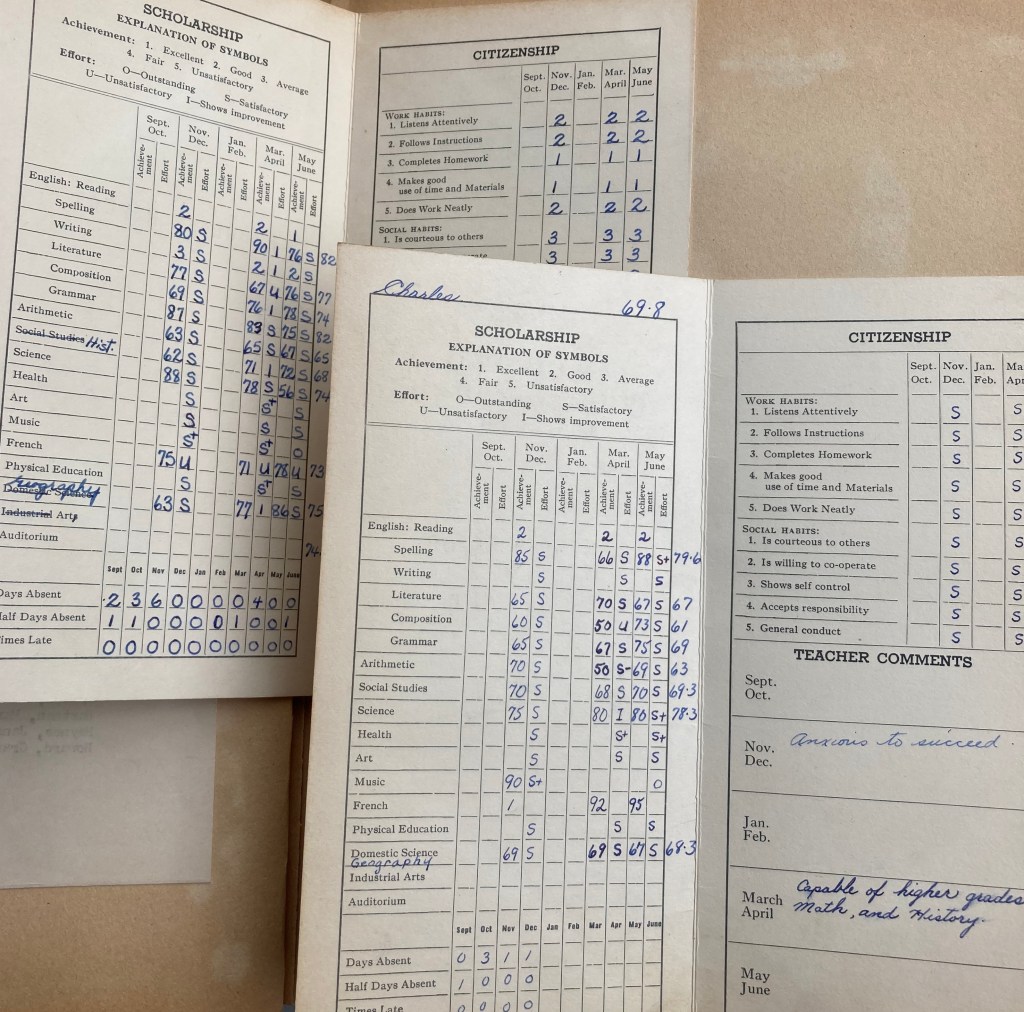 SCHOLARSHIP
EXPLANATION OF SYMBOLS
Achievement: 1. Excellent 2. Good 3. Average
4. Fair 5. Unsatisfactory
Effort: O—Outstanding S—Satisfactory
U—Unsatisfactory I—Shows improvement
Sept. Oct. Nov. Dec. Jan. Feb. Mar. April May June
Achieve-ment Effort Achieve-ment Effort Achieve-ment Effort Achieve-ment Effort
English: Reading 2 2 1
Spelling 80 S 90 1 76 S 82
Writing 3 S 2 1 2 S
Literature 77 S 67 U 76 S 77
Composition 69 S 76 1 78 S 74
Grammar 87 S 83 S 75 S 82
Arithmetic 63 S 65 S 67 S 65
Social Studies Hist. 62 S 71 1 72 S 68
Science 88 S 78 S 56 S 74
Health S S+ S
Art S S S
Music S+ S+ O
French 75 U 71 U 78 U 73
Physical Education S S+ S
Domestic Science Geography 63 S 77 1 86 S 75
Industrial Arts
Auditorium 74
Sept Oct Nov Dec Jan Feb Mar Apr May June
Days Absent 2 3 6 0 0 0 0 4 0 0
Half Days Absent 1 1 0 0 0 0 1 0 0 1
Times Late 0 0 0 0 0 0 0 0 0 0
CITIZENSHIP
Sept. Oct. Nov. Dec. Jan. Feb. Mar. April May June
WORK HABITS:
1. Listens Attentively 2 2 2
2. Follows Instructions 2 2 2
3. Completes Homework 1 1 1
4. Makes good
use of time and Materials 1 1 1
5. Does Work Neatly 2 2 2
SOCIAL HABITS:
1. Is courteous to others 3 3 3
3 3 3
Charles 69.8
SCHOLARSHIP
EXPLANATION OF SYMBOLS
Achievement: 1. Excellent 2. Good 3. Average
4. Fair 5. Unsatisfactory
Effort: O—Outstanding S—Satisfactory
U—Unsatisfactory I—Shows improvement
Sept. Oct. Nov. Dec. Jan. Feb. Mar. April May June
Achieve-ment Effort Achieve-ment Effort Achieve-ment Effort Achieve-ment Effort Achieve-ment Effort
English: Reading 2 2 2
Spelling 85 S 66 S 88 S+ 79.6
Writing S S S
Literature 65 S 70 S 67 S 67
Composition 60 S 50 U 73 S 61
Grammar 65 S 67 S 75 S 69
Arithmetic 70 S 50 S- 69 S 63
Social Studies 70 S 68 S 70 S 69.3
Science 75 S 80 I 80 S+ 78.3
Health S S+ S+
Art S S S
Music 90 S+ O
French 1 92 95
Physical Education S S S
Domestic Science 69 S 69 S 67 S 68.3
Geography
Industrial Arts
Auditorium
Sept Oct Nov Dec Jan Feb Mar Apr May June
Days Absent 0 3 1 1
Half Days Absent 1 0 0 0
Times Late 0 0 0 0
CITIZENSHIP
Sept. Oct. Nov. Dec. Jan. Feb.
WORK HABITS:
1. Listens Attentively S S
2. Follows Instructions S S
3. Completes Homework S S
4. Makes good
use of time and Materials S S
5. Does Work Neatly S S
SOCIAL HABITS:
1. Is courteous to others S S
2. Is willing to co-operate S S
3. Shows self control S S
4. Accepts responsibility S S
5. General conduct S S
TEACHER COMMENTS
Sept.
Oct.
Nov. Anxious to succeed.
Dec.
Jan.
Feb.
March Capable of higher grades
April Math, and History.
May
June